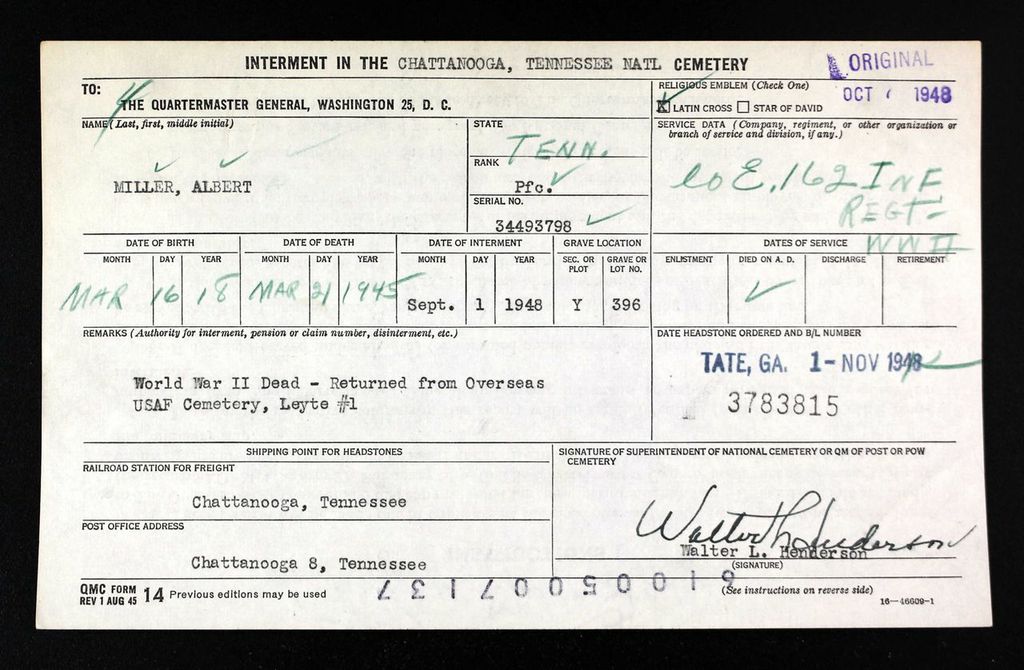 INTERMENT IN THE CHATTANOOGA, TENNESSEE NATL CEMETERY
ORIGINAL
OCT 1948
TO:
THE QUARTERMASTER GENERAL, WASHINGTON 25, D. C.
RELIGIOUS EMBLEM (Check One)
X LATIN CROSS STAR OF DAVID
NAME (Last, first, middle initial)
MILLER, ALBERT
STATE
TENN.
RANK
Pfc.
SERIAL NO.
34493798
SERVICE DATA (Company, regiment, or other organization or
branch of service and division, if any.)
Co E. 162 INF
REGT-
WWII
DATE OF BIRTH DATE OF DEATH DATE OF INTERMENT GRAVE LOCATION DATES OF SERVICE
MONTH DAY YEAR MONTH DAY YEAR MONTH DAY YEAR SEC. OR PLOT GRAVE OR LOT NO. ENLISTMENT DIED ON A. D. DISCHARGE RETIREMENT
MAR 16 18 MAR 21 1945 Sept. 1 1948 Y 396
REMARKS (Authority for interment, pension or claim number, disinterment, etc.)
World War II Dead - Returned from Overseas
USAF Cemetery, Leyte #1
DATE HEADSTONE ORDERED AND B/L NUMBER
TATE, GA. 1- NOV 1948
3783815
SHIPPING POINT FOR HEADSTONES
RAILROAD STATION FOR FREIGHT
Chattanooga, Tennessee
POST OFFICE ADDRESS
Chattanooga 8, Tennessee
SIGNATURE OF SUPERINTENDENT OF NATIONAL CEMETERY OR QM OF POST OR POW
CEMETERY
Walter L Henderson
Walter L. Henderson
(SIGNATURE)
QMC FORM
REV 1 AUG 45 14 Previous editions may be used
(See instructions on reverse side)
16—46609-1